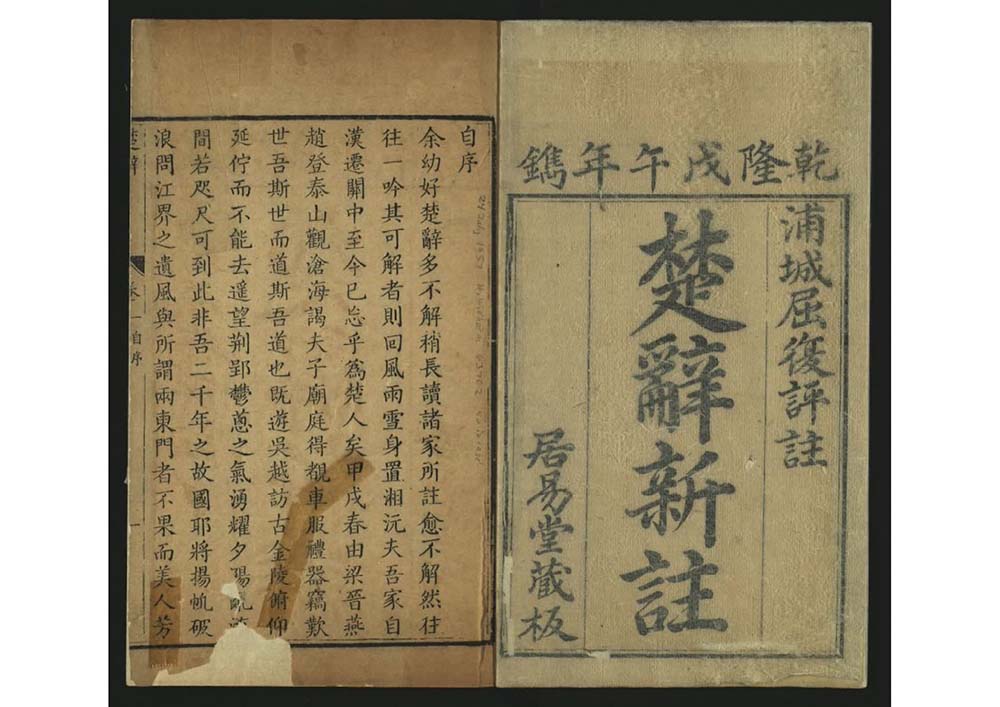 乾隆戊午年鐫
浦城屈復評註
楚辭新註
居易堂蔵板
自序
余幼好楚辭多不解稍長讀諸家所註愈不解然往
往一吟其可解者則回風雨雪身置湘沅夫吾家自
漢遷關中至今已忘乎爲楚人矣甲戌春由梁晉燕
趙登泰山觀滄海謁夫子廟庭得覩車服禮器竊歎
世吾斯世而道斯吾道也既遊吳越訪古金陵俯仰
延佇而不能去遥望荆郢鬱蔥之氣湧耀夕陽帆
間若咫尺可到此非吾二千年之故國耶將揚帆破
浪問江界之遺風與所謂兩東門者不果而美人芳
楚辭 自序 一